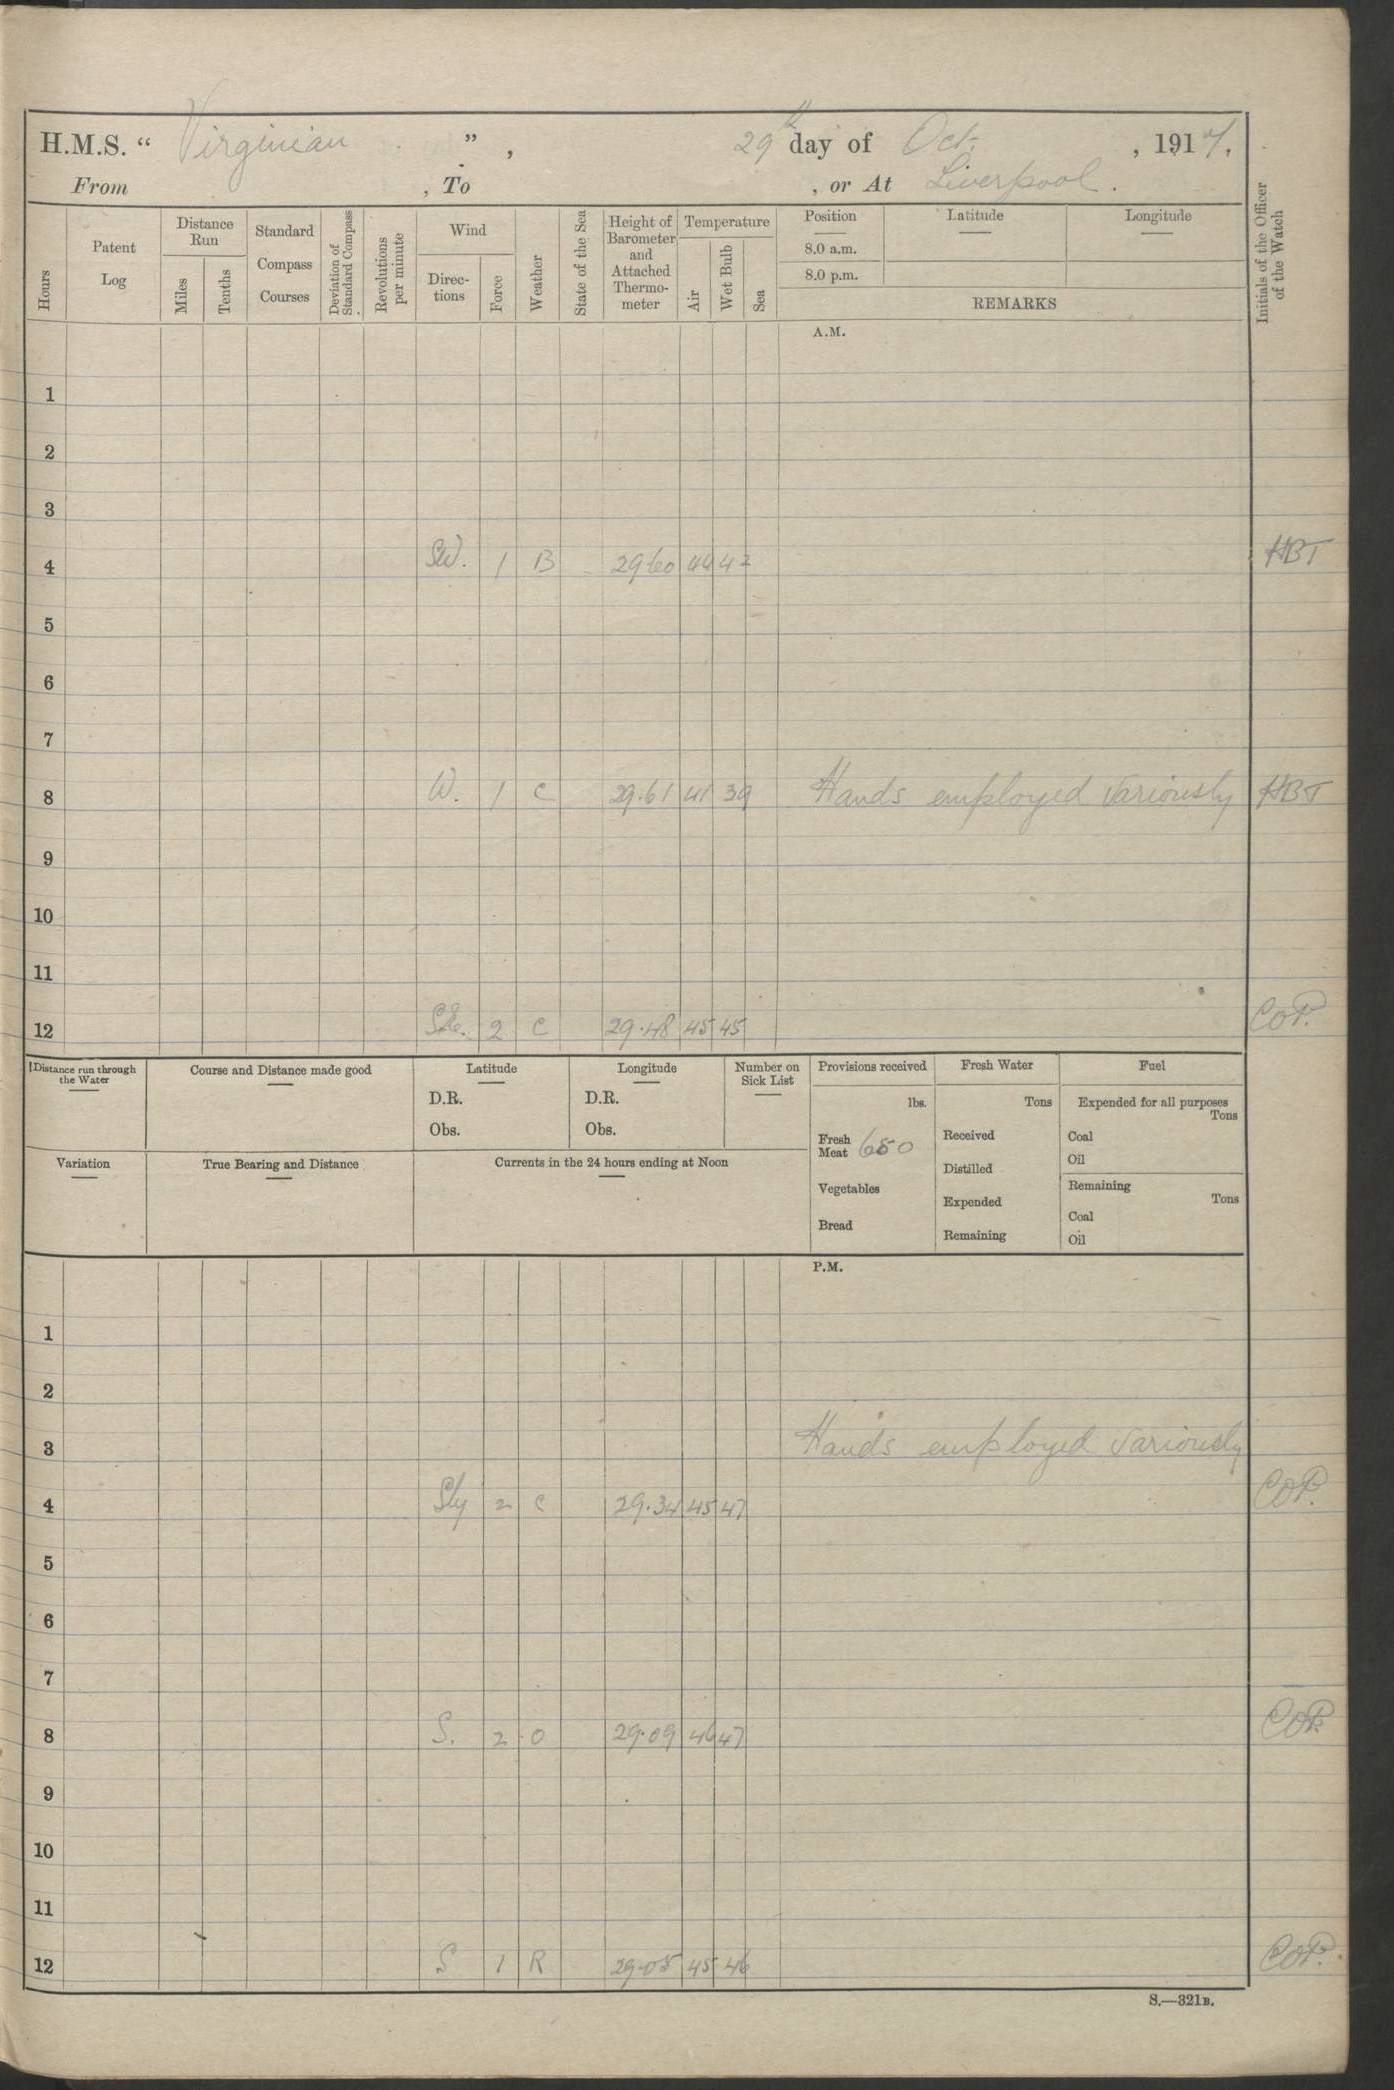 H.M.S. “ Virginian ” , 29th day of Oct. , 1917.
From , To , or At Liverpool .
Hours
Patent Log
Distance Run
Miles
Tenths
Standard Compass Courses
Deviation of Standard Compass
Revolutions per minute
Wind
Direc-tions
Force
Weather
State of the Sea
Height of Barometer and Attached Thermo-meter
Temperature
Air
Wet Bulb
Sea
Position
8.0 a.m.
8.0 p.m.
Latitude
Longitude
REMARKS
Initials of the Officer of the Watch
A.M.
1
2
3
4 SW. 1 B 2960 44 42 HBT
5
6
7
8 W. 1 C 29.61 41 39 Hands employed variously HBT
9
10
11
12 2 C 29.48 45 45 COP.
Distance run through the Water
Course and Distance made good
Latitude
D.R.
Obs.
Longitude
D.R.
Obs.
Number on Sick List
Provisions received
lbs.
Fresh Meat 650
Vegetables
Bread
Fresh Water
Tons
Received
Distilled
Expended
Remaining
Fuel
Expended for all purposes
Tons
Coal
Oil
Remaining
Tons
Coal
Oil
Variation
True Bearing and Distance
Currents in the 24 hours ending at Noon
P.M.
1
2
3 Hands employed variously
4 Sly 2 C 29.34 45 47 COP.
5
6
7
8 S. 2 O 29.09 46 47 COP.
9
10
11
12 S 1 R 29.05 45 46 COP.
S.—321B.